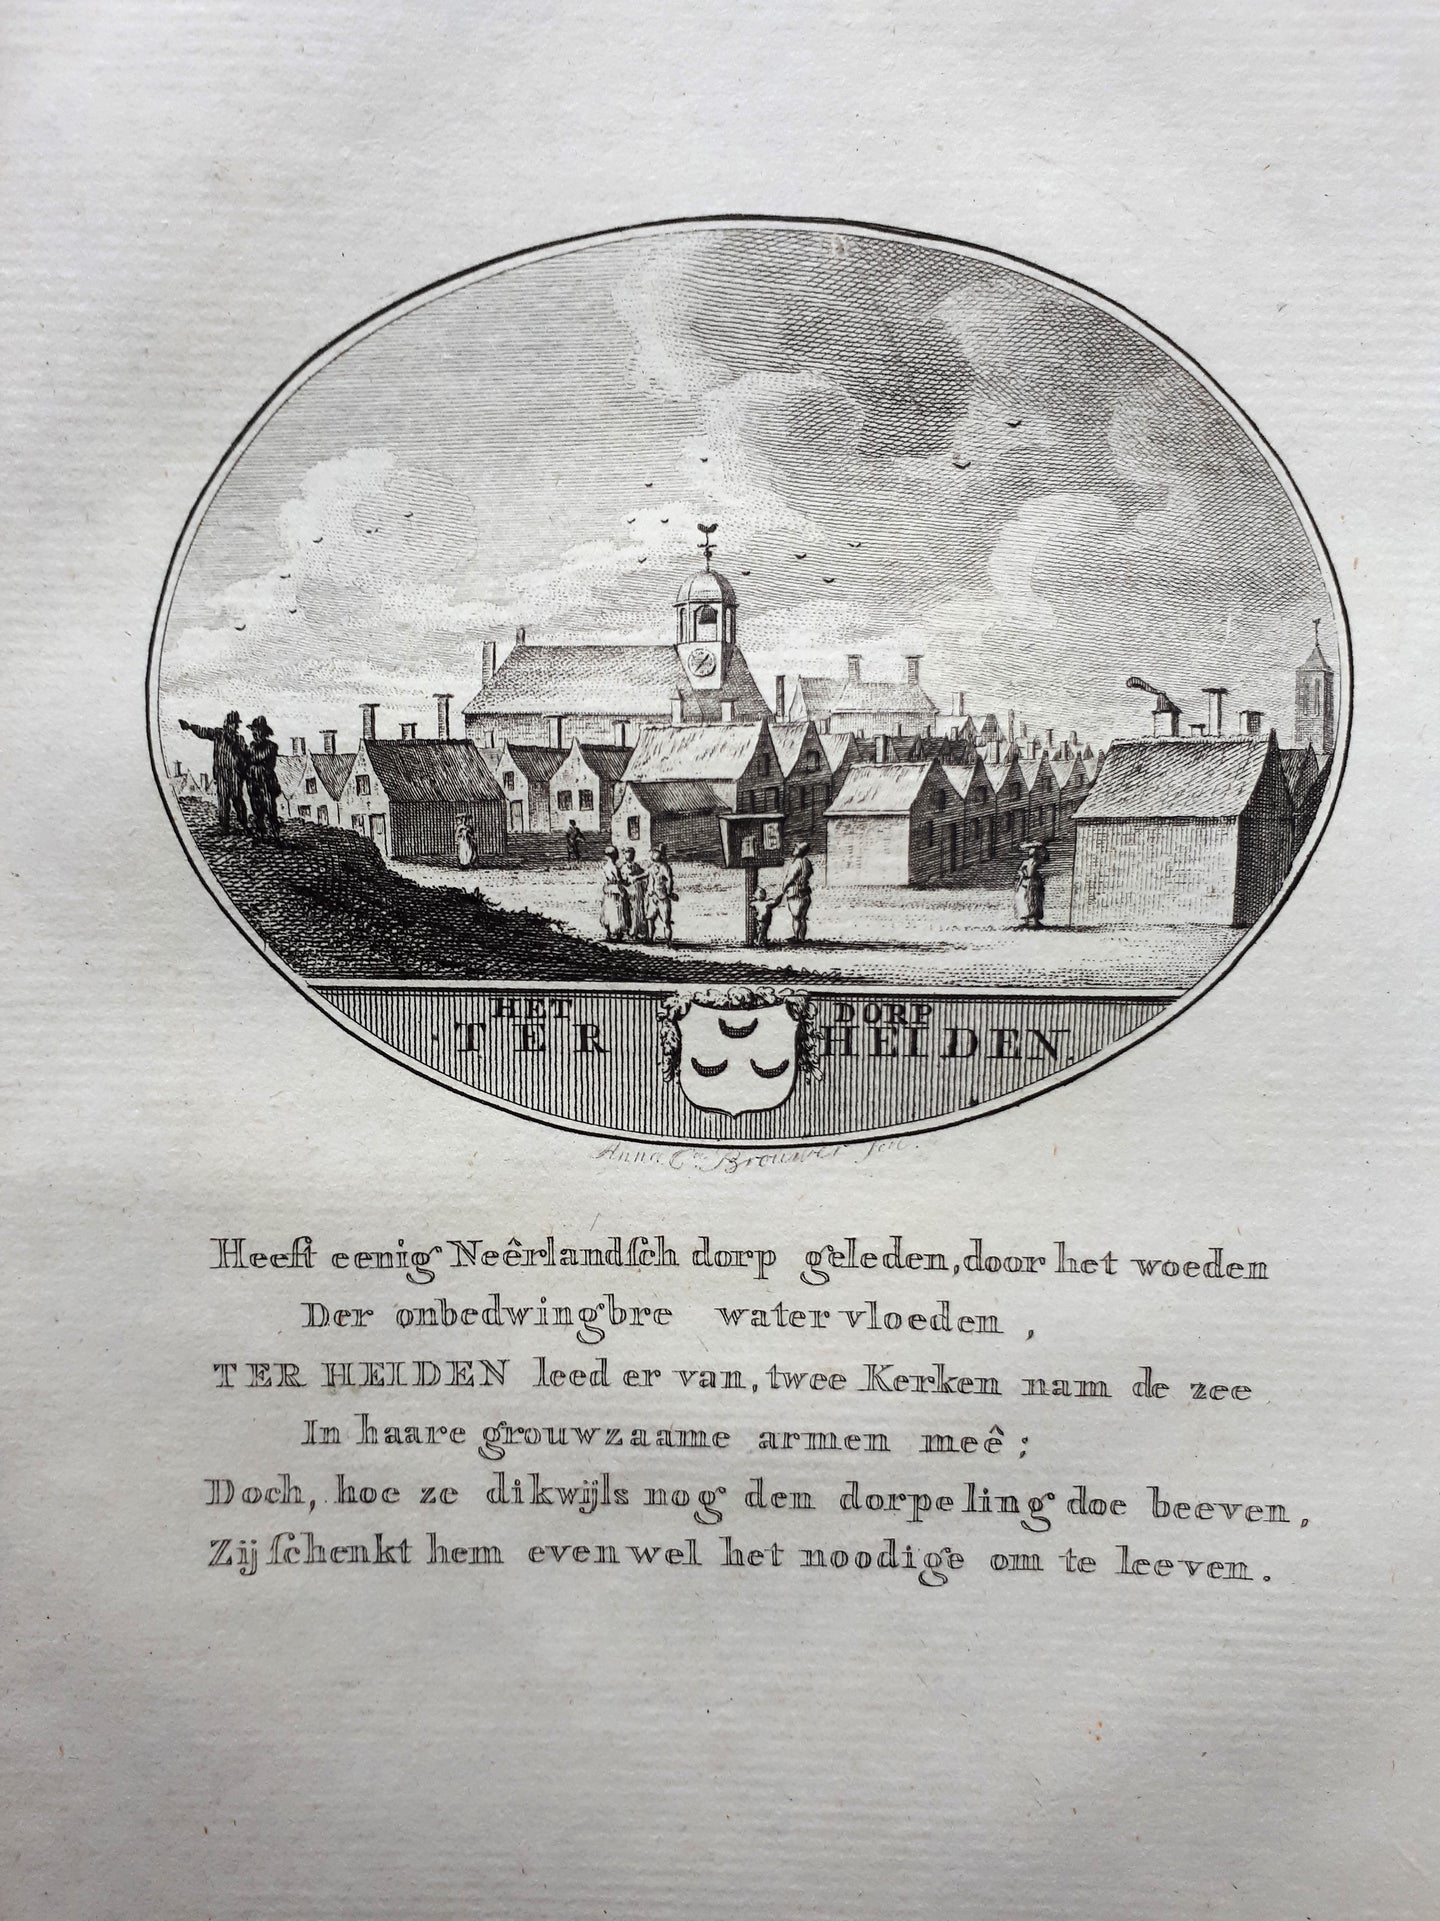 HET DORP
TER HEIDEN.
Anna Ca. Brouwer fec.
Heeft eenig Neêrlandſch dorp geleden, door het woeden
Der onbedwingbre watervloeden,
TER HEIDEN leed er van, twee Kerken nam de zee
In haare grouwzaame armen meê;
Doch, hoe ze dikwijls nog den dorpeling doe beeven,
Zij ſchenkt hem evenwel het noodige om te leeven.